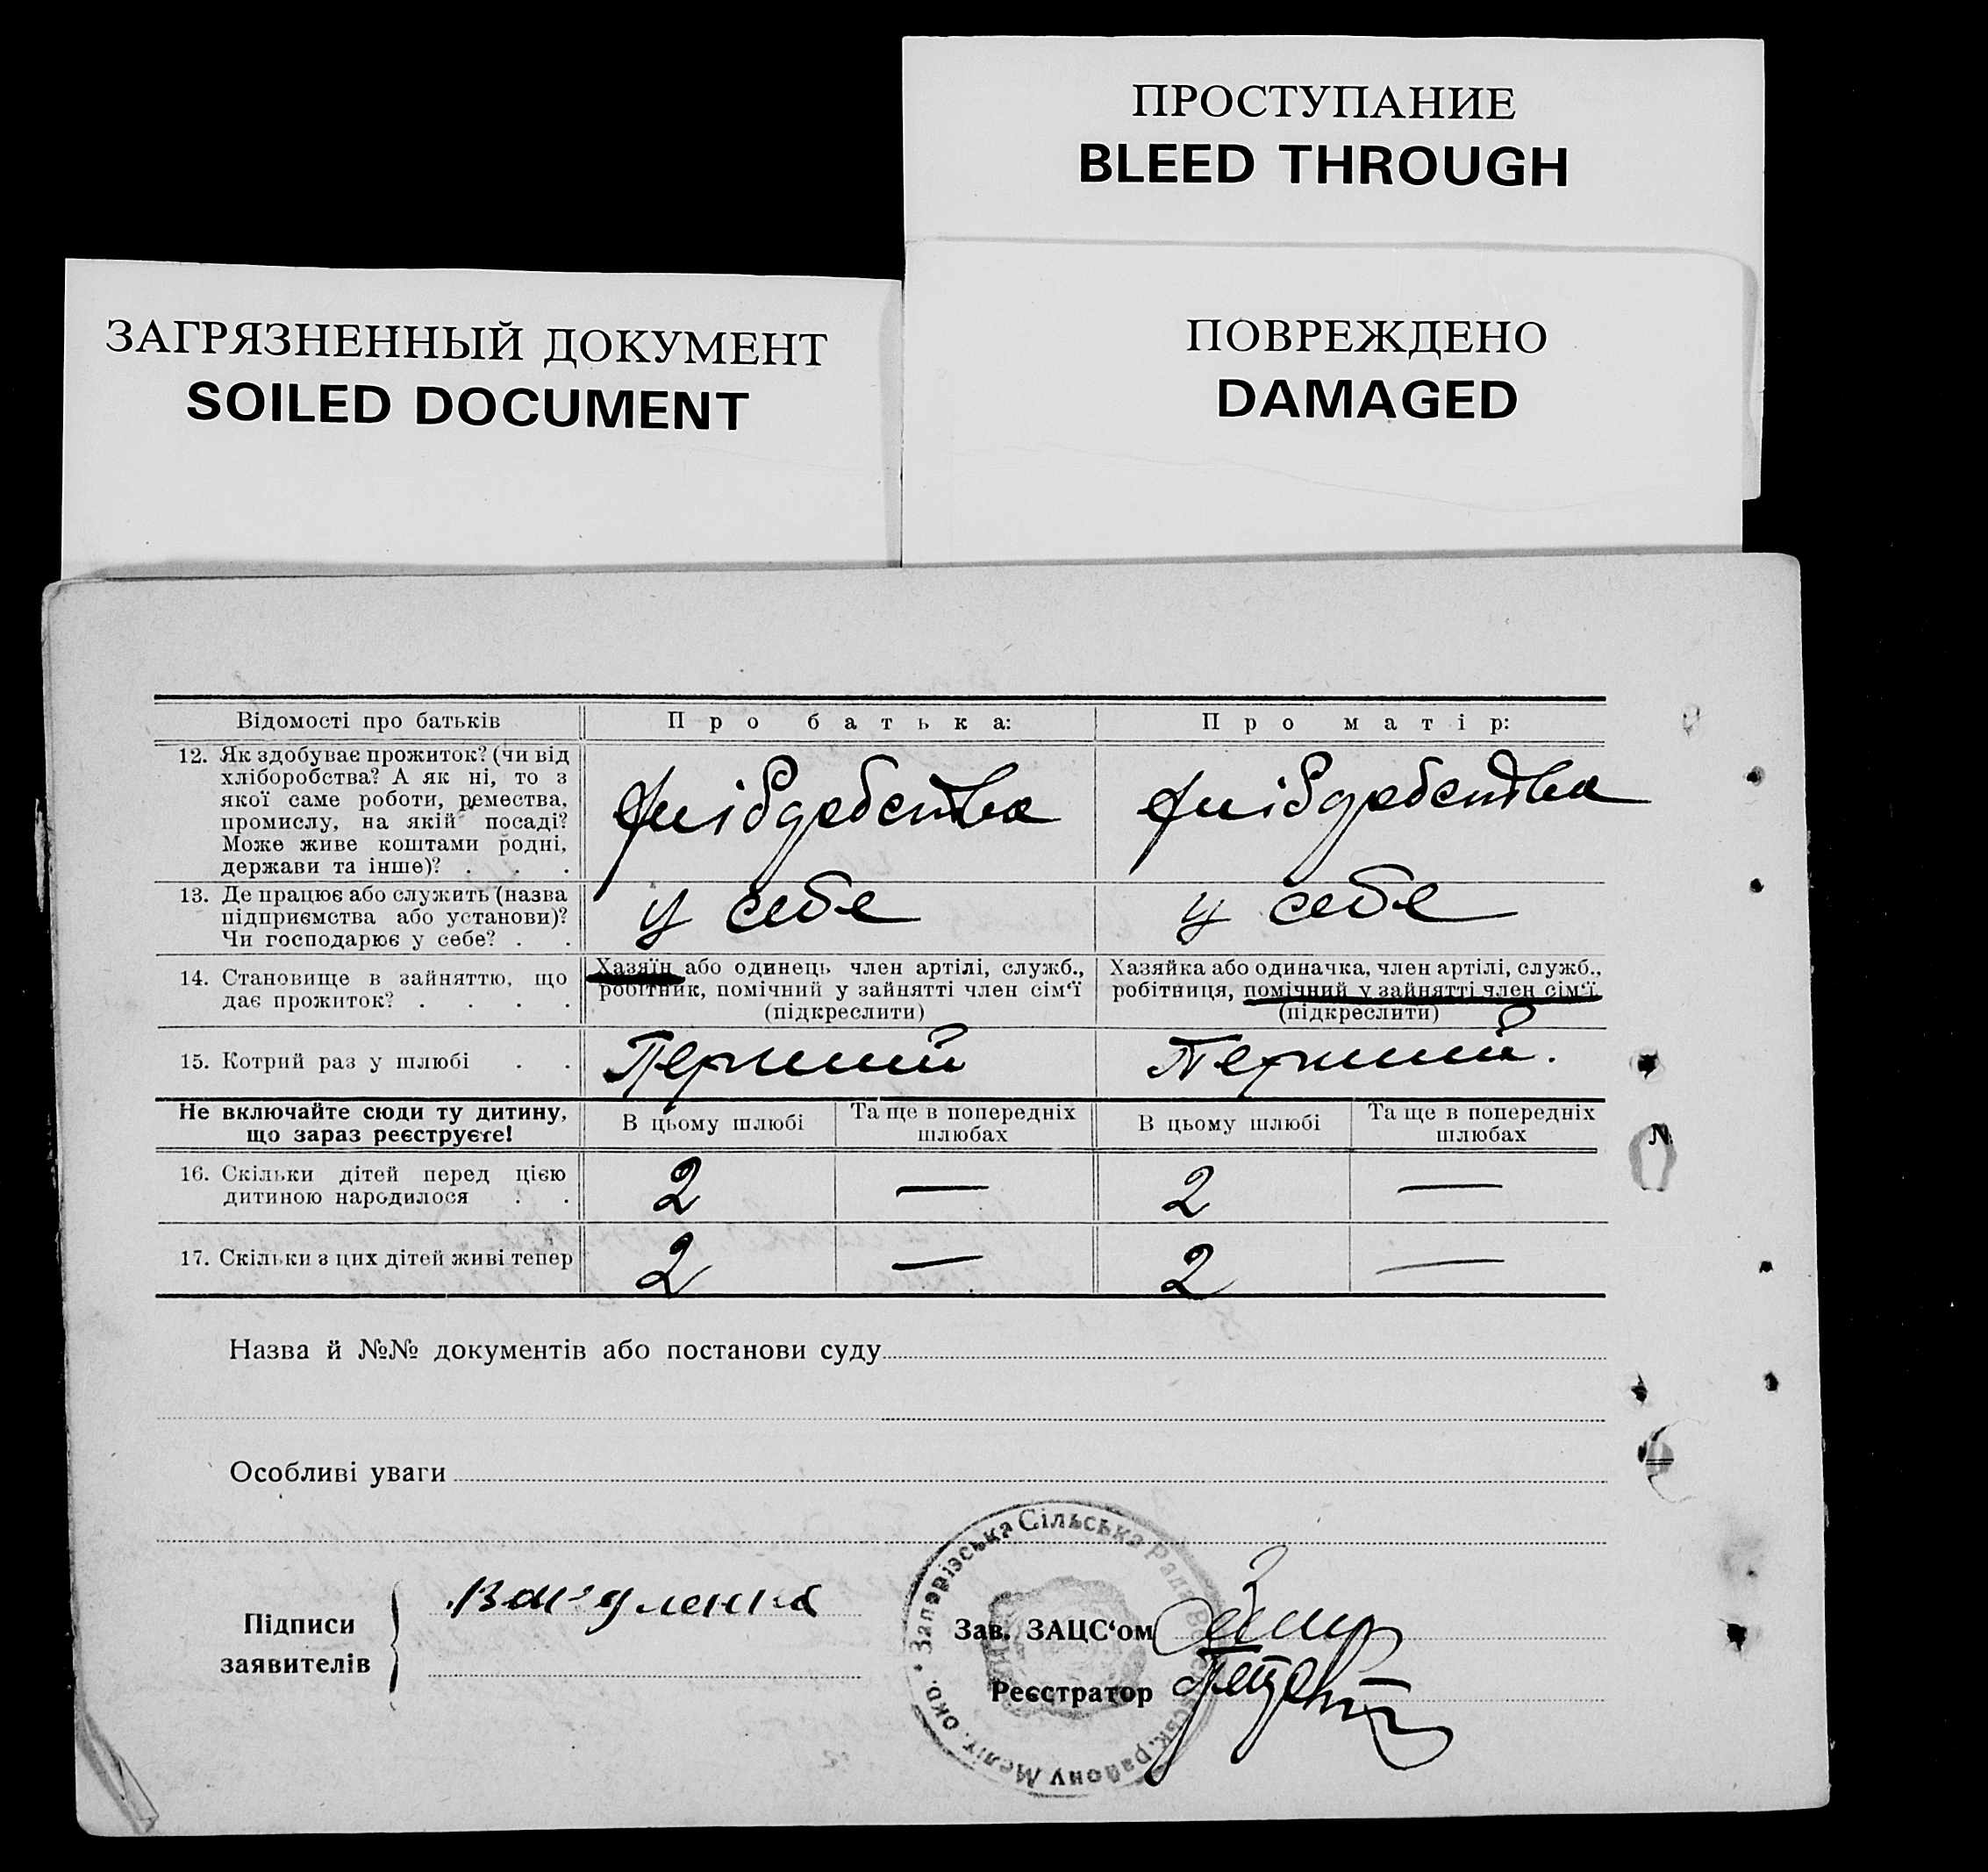 ПРОСТУПАНИЕ
BLEED THROUGH
ПОВРЕЖДЕНО
DAMAGED
ЗАГРЯЗНЕННЫЙ ДОКУМЕНТ
SOILED DOCUMENT
Відомості про батьків
Про батька:
Про матір:
12. Як здобуває прожиток? (чи від
хліборобства? А як ні, то з
якої саме роботи, ремества,
промислу, на якій посаді?
Може живе коштами родні,
держави та інше)? . . .
13. Де працює або служить (назва
підприємства або установи)?
Чи господарює у себе? . .
у себе
у себе
14. Становище в зайняттю, що
дає прожиток? . . . .
Хазяїн або одинець член артілі, служб.,
робітник, помічний у зайнятті член сім‘ї
(підкреслити)
Хазяйка або одиначка, член артілі, служб.,
робітниця, помічний у зайнятті член сім‘ї
(підкреслити)
15. Котрий раз у шлюбі . .
Перший
Перший.
Не включайте сюди ту дитину,
що зараз реєструєте!
В цьому шлюбі
Та ще в попередніх
шлюбах
В цьому шлюбі
Та ще в попередніх
шлюбах
16. Скільки дітей перед цією
дитиною народилося . .
2
—
2
—
17. Скільки з цих дітей живі тепер
2
—
2
—
Назва й №№ документів або постанови суду
Особливі уваги
Підписи
заявителів
Зав. ЗАЦС‘ом
Реєстратор
Запорізька Сільська Рада району Меліт. окр.